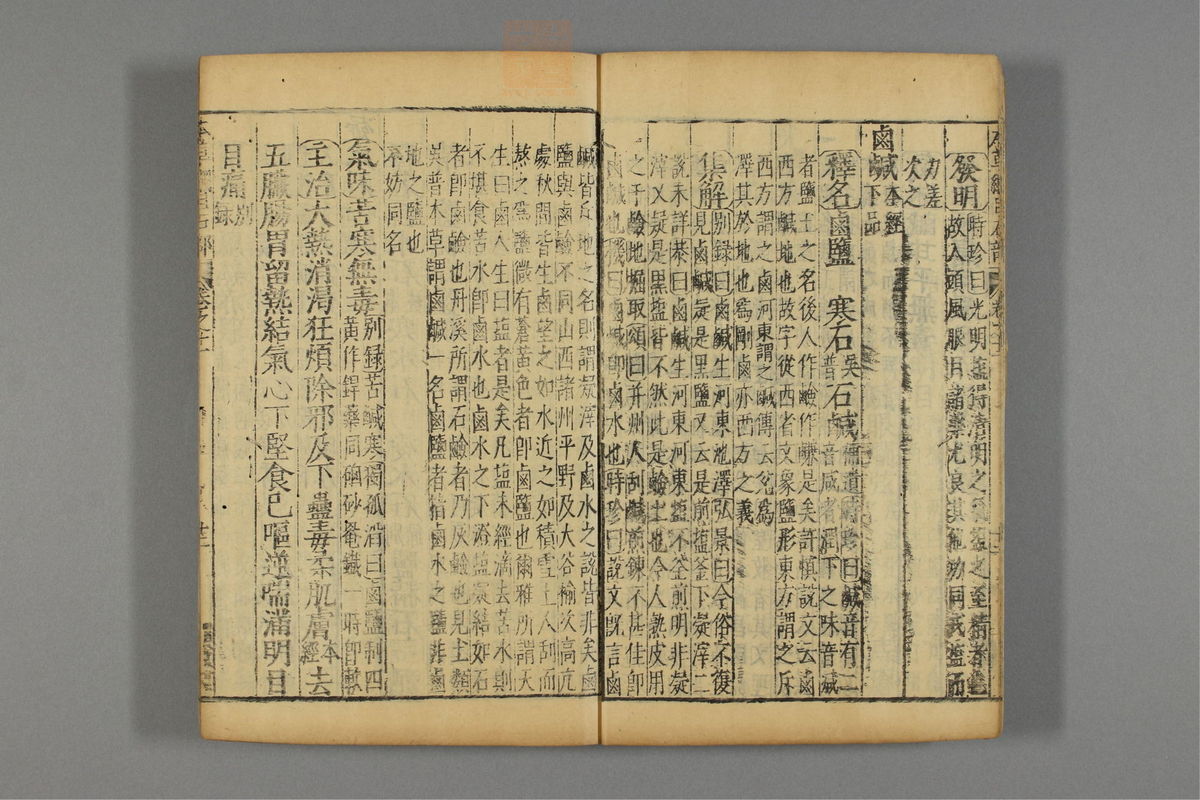 發明 時珍曰光明鹽得清明之氣鹽之至精者也
故入頭風眼目諸藥尤良其他功同戎鹽而
力差
次之
鹵鹹 本經
下品
釋名鹵鹽 寒石吳普 石鹹補遺時珍曰鹹音有二
音咸者潤下之味音減
者鹽土之名後人作鹼作鹻是矣許慎說文云鹵
西方鹹地也故字從西省文象鹽形東方謂之斥
西方謂之鹵河東謂之鹹傳云兌為
澤其於地也為剛鹵亦西方之義
集解別錄曰鹵鹹生河東池澤弘景曰今俗不復
見鹵鹹疑是黑鹽又云是煎鹽釜下凝滓二
說未詳恭曰鹵鹹生河東河東鹽不釜煎明非凝
滓又疑是黑鹽皆不然此是鹼土也今人熟皮用
之于鹼地掘取頌曰并州人刮鹹煎鍊不甚佳即
鹵鹹也機曰鹵鹹即鹵水也時珍曰說文既言鹵
鹹皆斥地之名則謂凝滓及鹵水之說皆非矣鹵
鹽與鹵鹼不同山西諸州平野及大谷榆次高亢
處秋間皆生鹵望之如水近之如積雪土人刮而
熬之為鹽微有蒼黃色者即鹵鹽也爾雅所謂天
生曰鹵人生曰鹽者是矣凡鹽未經滴去苦水則
不堪食苦水即鹵水也鹵水之下澄鹽凝結如石
者即鹵鹼也丹溪所謂石鹼者乃灰鹼也見土類
吳普本草謂鹵鹹一名鹵鹽者指鹵水之鹽非鹵
地之鹽也
不妨同名
氣味苦寒無毒別錄曰苦鹹寒獨孤滔曰鹵鹽制四
黃作銲藥同硇砂罨鐵一時即軟
主治大熱消渴狂煩除邪及下蠱毒柔肌膚本經去
五臟腸胃留熱結氣心下堅食已嘔逆喘滿明目
目痛別錄